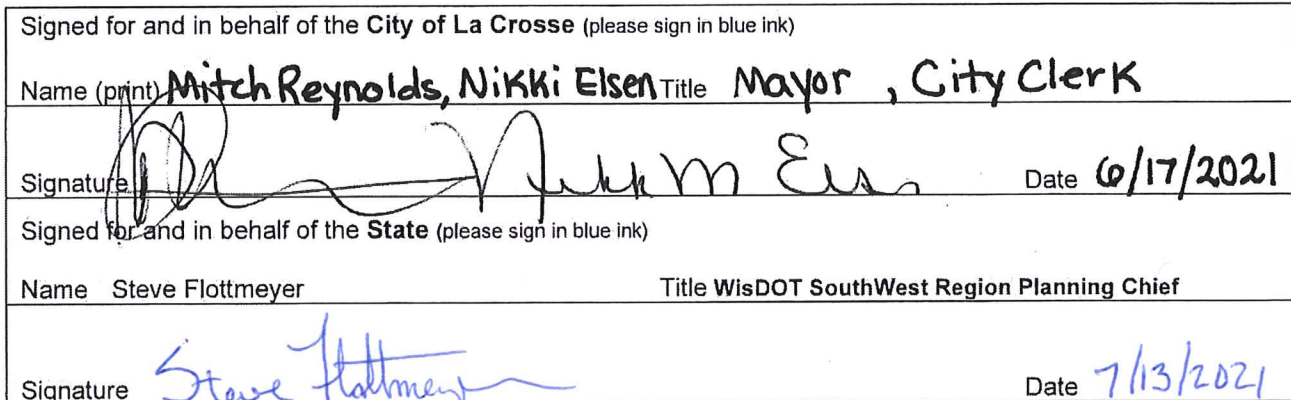 Signed for and in behalf of the City of La Crosse (please sign in blue ink)
Name (print) Mitch Reynolds, Nikki Elsen Title Mayor , City Clerk
Signature Nikki M Elsen Date 6/17/2021
Signed for and in behalf of the State (please sign in blue ink)
Name Steve Flottmeyer Title WisDOT SouthWest Region Planning Chief
Signature Steve Flottmeyer Date 7/13/2021